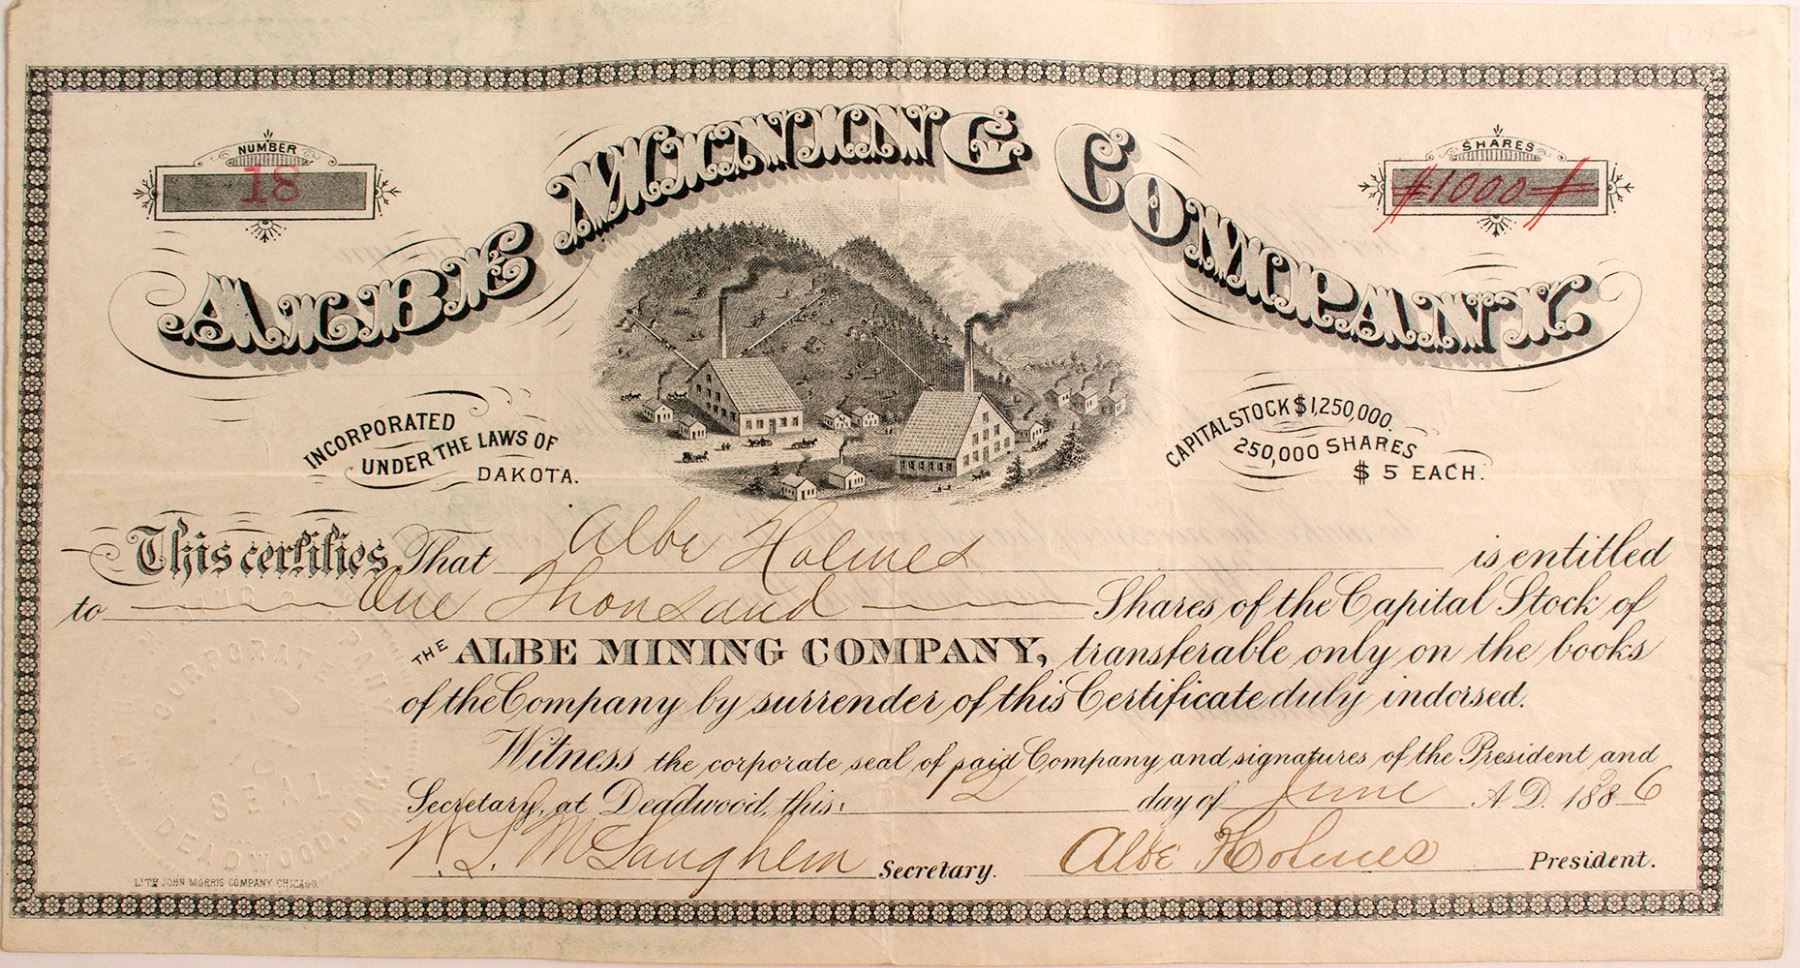 NUMBER
18
SHARES
1000
ALBE MINING COMPANY.
INCORPORATED
UNDER THE LAWS OF
DAKOTA.
CAPITAL STOCK $1,250,000.
250,000 SHARES
$5 EACH.
This certifies That Albe Holmes is entitled
to One Thousand Shares of the Capital Stock of
THE ALBE MINING COMPANY, transferable only on the books
of the Company by surrender of this Certificate duly indorsed.
Witness the corporate seal of said Company and signatures of the President and
Secretary, at Deadwood, this 12 day of June A.D. 1886
McLaughlin Secretary. Albe Holmes President.
SEAL
DEADWOOD, DAK
LITH JOHN MORRIS COMPANY CHICAGO.